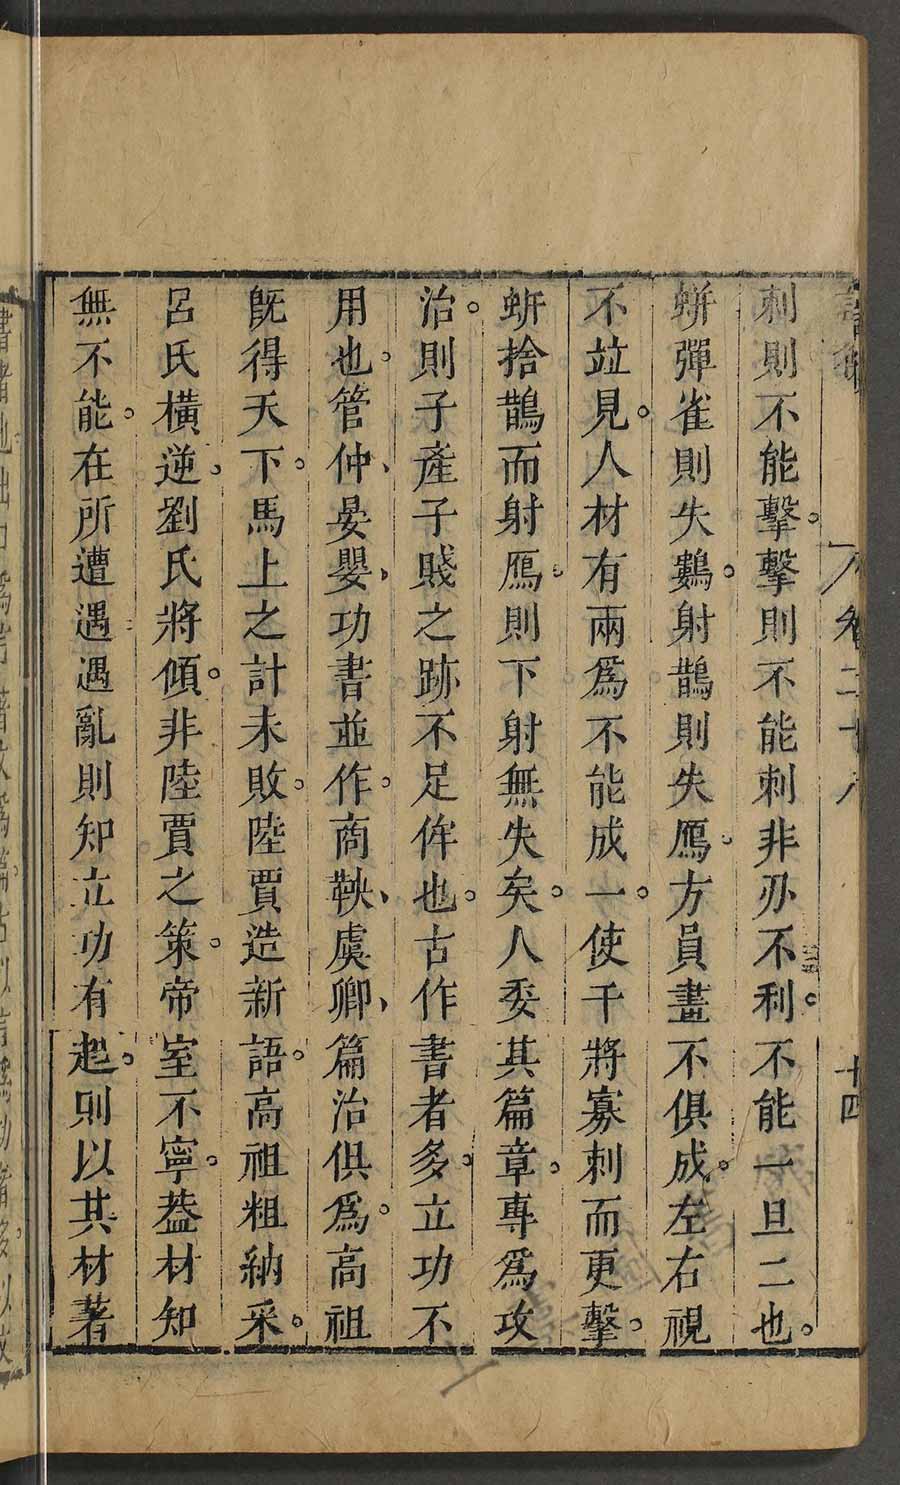 論衡 卷二十八 十四
刺則不能擊。擊則不能刺非刅不利。不能一旦二也。
蛢彈雀則失鷜。射鵲則失鴈。方員畫不俱成。左右視
不竝見。人材有兩爲不能成一。使干將寡刺而更擊。
蛢捨鵲而射鴈。則下射無失矣。人委其篇章。專爲攻
治。則子產子賤之跡不足侔也。古作書者多。立功不
用也。管仲、晏嬰、功書並作。商鞅、虞卿、篇治俱爲。高祖
旣得天下。馬上之計未敗。陸賈造新語。高祖粗納采。
呂氏橫逆。劉氏將傾。非陸賈之策。帝室不寧。葢材知
無不能。在所遭遇遇亂則知立功有起。則以其材著